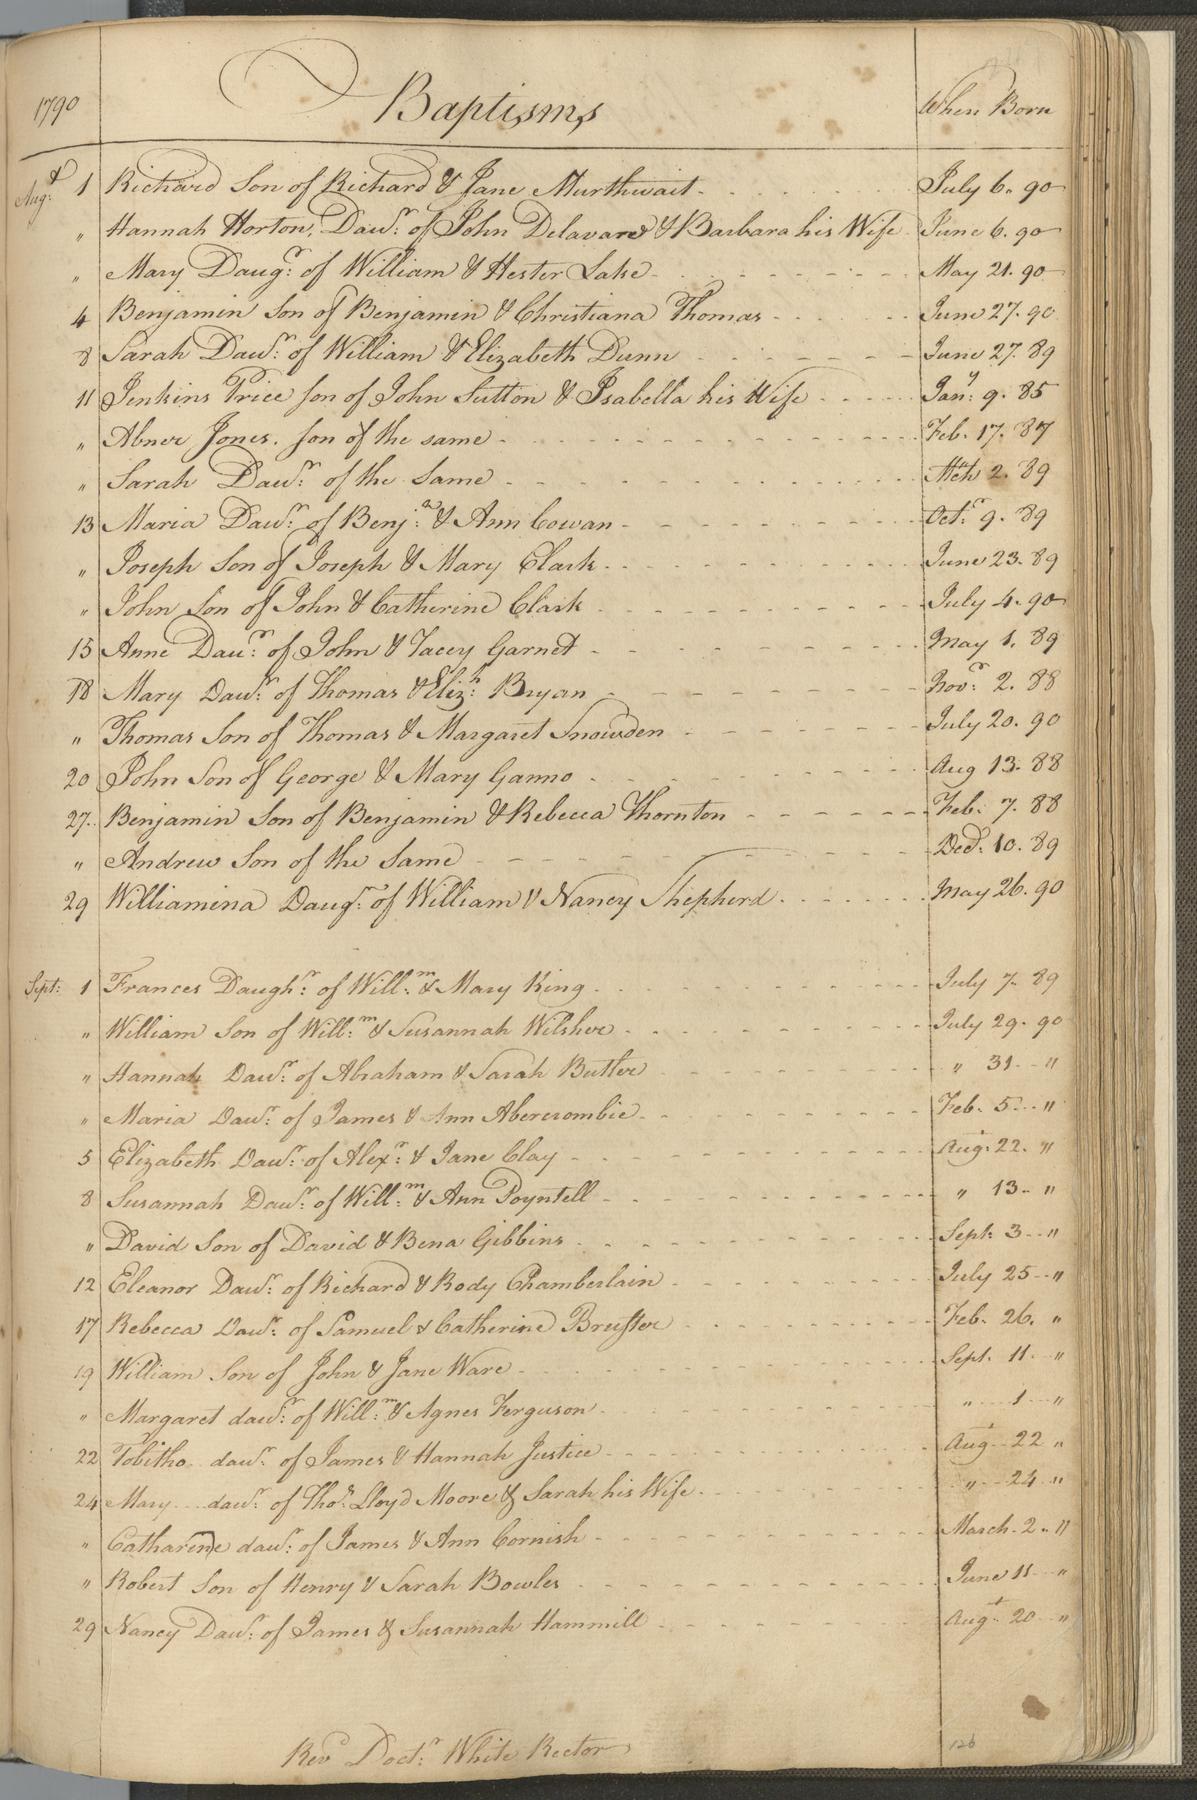 1790 Baptisms When Born
Augt 1 Richard Son of Richard & Jane Murthwait July 6. 90
" Hannah Horton, Daur. of John Delavare & Barbara his Wife June 6. 90
" Mary Daugr. of William & Hester Lake May 21. 90
4 Benjamin Son of Benjamin & Christiana Thomas June 27. 90
8 Sarah Daur. of William & Elizabeth Dunn June 27. 89
11 Jenkins Price son of John Sutton & Isabella his Wife Jany. 9. 85
" Abner Jones. son of the same Feb. 17. 87
" Sarah Daur. of the Same Mch 2. 89
13 Maria Daur. of Benja. & Ann Cowan Octr. 9. 89
" Joseph Son of Joseph & Mary Clark June 23. 89
" John Son of John & Catherine Clark July 4. 90
15 Anne Daur. of John & Tacey Garnet May 1. 89
18 Mary Daur. of Thomas & Elizh. Bryan Novr. 2. 88
" Thomas Son of Thomas & Margaret Snowden July 20. 90
20 John Son of George & Mary Ganno Aug 13. 88
27. Benjamin Son of Benjamin & Rebecca Thornton Feb. 7. 88
" Andrew Son of the Same Decr. 10. 89
29 Williamina Daugr. of William & Nancy Shepherd May 26. 90
Sept: 1 Frances Daughr. of Willm. & Mary King July 7. 89
" William Son of Willm. & Susannah Wilsher July 29. 90
" Hannah Daur. of Abraham & Sarah Butler " 31 "
" Maria Daur. of James & Ann Abercrombie Feb. 5 "
5 Elizabeth Daur. of Alexr. & Jane Clay Augt. 22. "
8 Susannah Daur. of Willm. & Ann Poyntell " 13 "
" David Son of David & Bena Gibbins Sept: 3 "
12 Eleanor Daur. of Richard & Rody Chamberlain July 25 "
17 Rebecca Daur. of Samuel & Catherine Bruster Feb. 26. "
19 William Son of John & Jane Ware Sept. 11 "
" Margaret daur. of Willm. & Agnes Ferguson " 1 "
22 Tobitho daur. of James & Hannah Justice Augt 22 "
24 Mary daur. of Thos. Lloyd Moore & Sarah his Wife " 24 "
" Catharine daur. of James & Ann Cornish March. 2 "
" Robert Son of Henry & Sarah Bowles June 11 "
29 Nancy Daur. of James & Susannah Hammill Augt. 20 "
Revd Doctr. White Rector
126